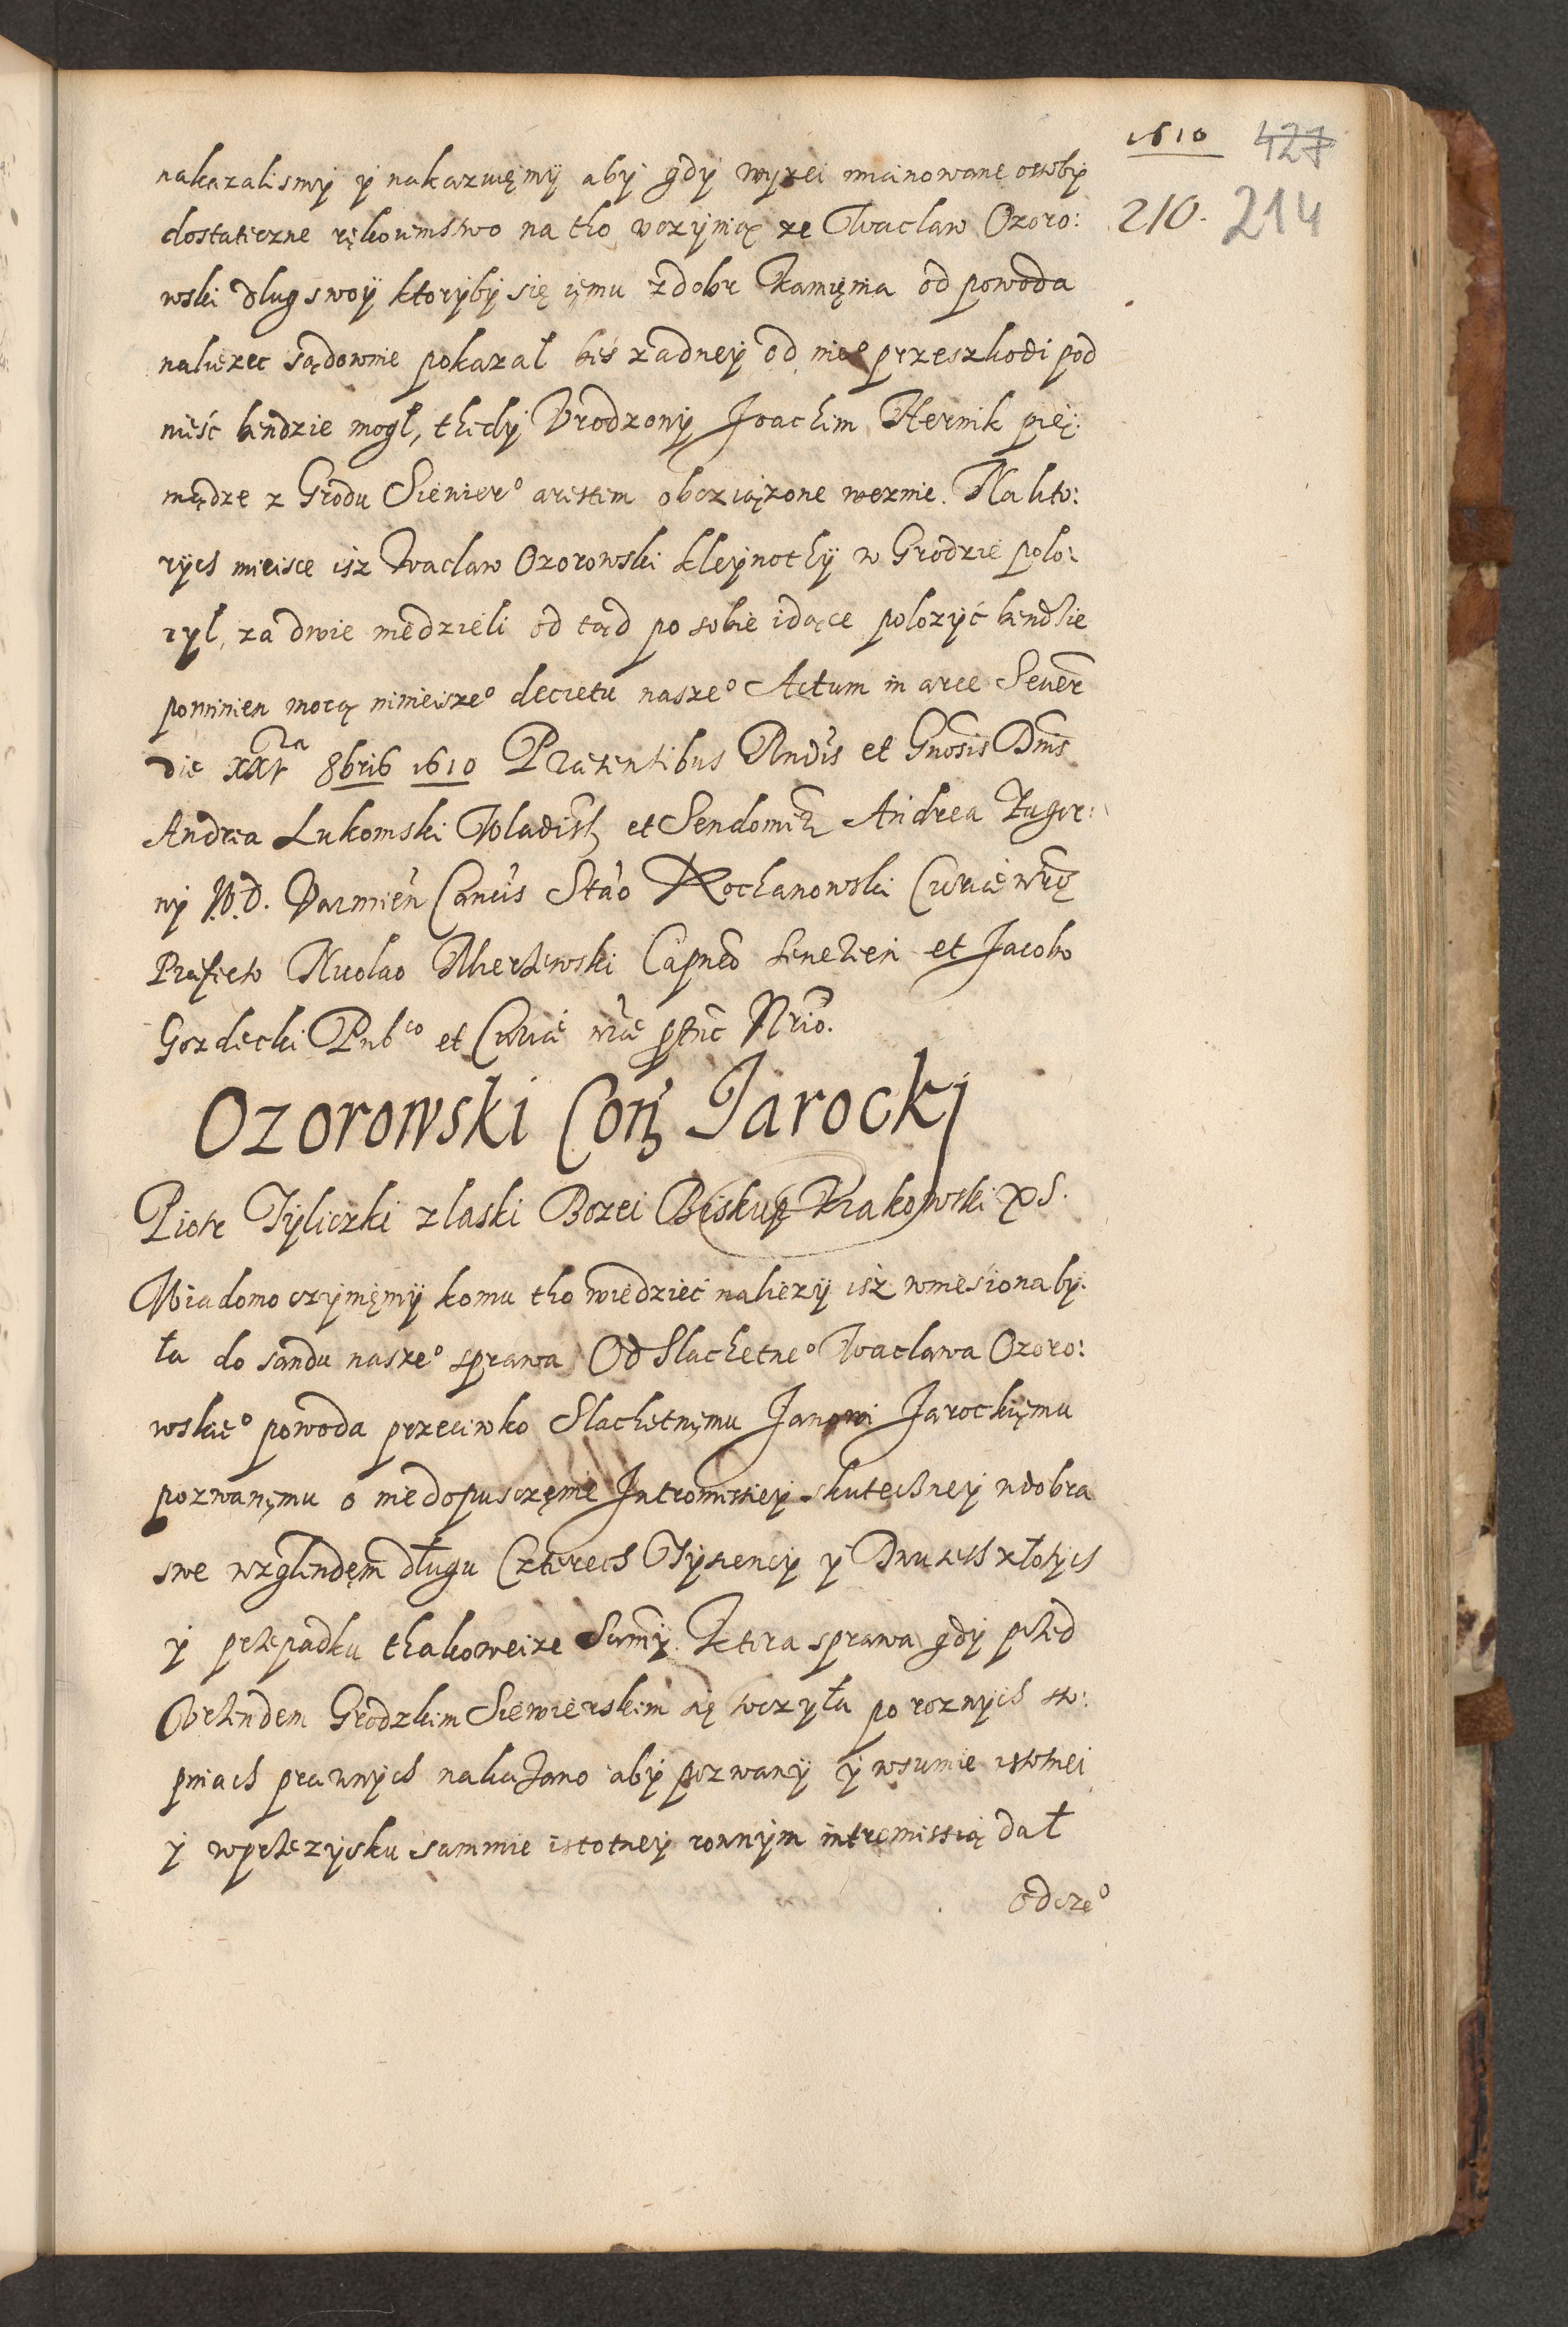 1610 427
210. 214
nakazalismÿ ÿ nakazuięmÿ abÿ gdÿ wyzei mianowane osobÿ
dostateczne rękoiemstwo na tho vczynią ze Waclaw Ozoro:
wski dlug swoÿ ktorÿbÿ się iemu z dobr Kamięnia od powoda
należec sądownie pokazał bes żadneÿ od nieº przeszkodi pod
nieść bendzie mogł, thedÿ Vrodzonÿ Joachim Hernik pię:
niędze z Grodu Siewierº arestem obcziążone wezmie. Na kto:
rÿch mieisce isz Waclaw Ozorowski kleÿnothÿ w Grodzie polo:
zyl, za dwie niedzieli od tąd po sobie idące polozÿć bendzie
powinien mocą ninieiszeº decretu naszeº Actum in arce Seuer̃
die XXIta 8bris 1610 Præsentibus Rndis et Gnosis Dnis
Andrea Lukomski Wladisl et Sendomir̃ Andrea Zagor:
nÿ V.D. Varmień Cancis Stao Kochanowski Curiæ nr̃æ
Præfecto Nicolao Mierzewski Capneo Seuerien et Jacobo
Gozdecki Pubco et Curiæ nr̃æ ptñc Nrio.
Ozorowski Con Jarockj
Piotr Tÿliczki z laski Bozei Biskup Krakowski XS.
Wiadomo czÿnięmÿ komu tho wiedzieć nalezÿ isż wniesiona bÿ:
ła do sandu naszeº sprawa Od Slachetneº Waclawa Ozoro:
wskieº powoda przeciwko Slachetnęmu Janowi Jarockięmu
pozwanęmu o niedopuszczęnie Intromissieÿ skuteczneÿ w dobra
swe wzglendęm długu Czterech Tÿsiency ÿ Dwuchset złotÿch
ÿ przepadku thakoweize Sumÿ. Ktora sprawa gdÿ przed
Vrzendem Grodzkim Siewierskim się toczyła po roznÿch sto:
pniach prawnÿch nakazano abÿ pozwanÿ ÿ w sumie istotnei
ÿ w przezÿsku sammie istotneÿ rownÿm intromissią dał
od czeº